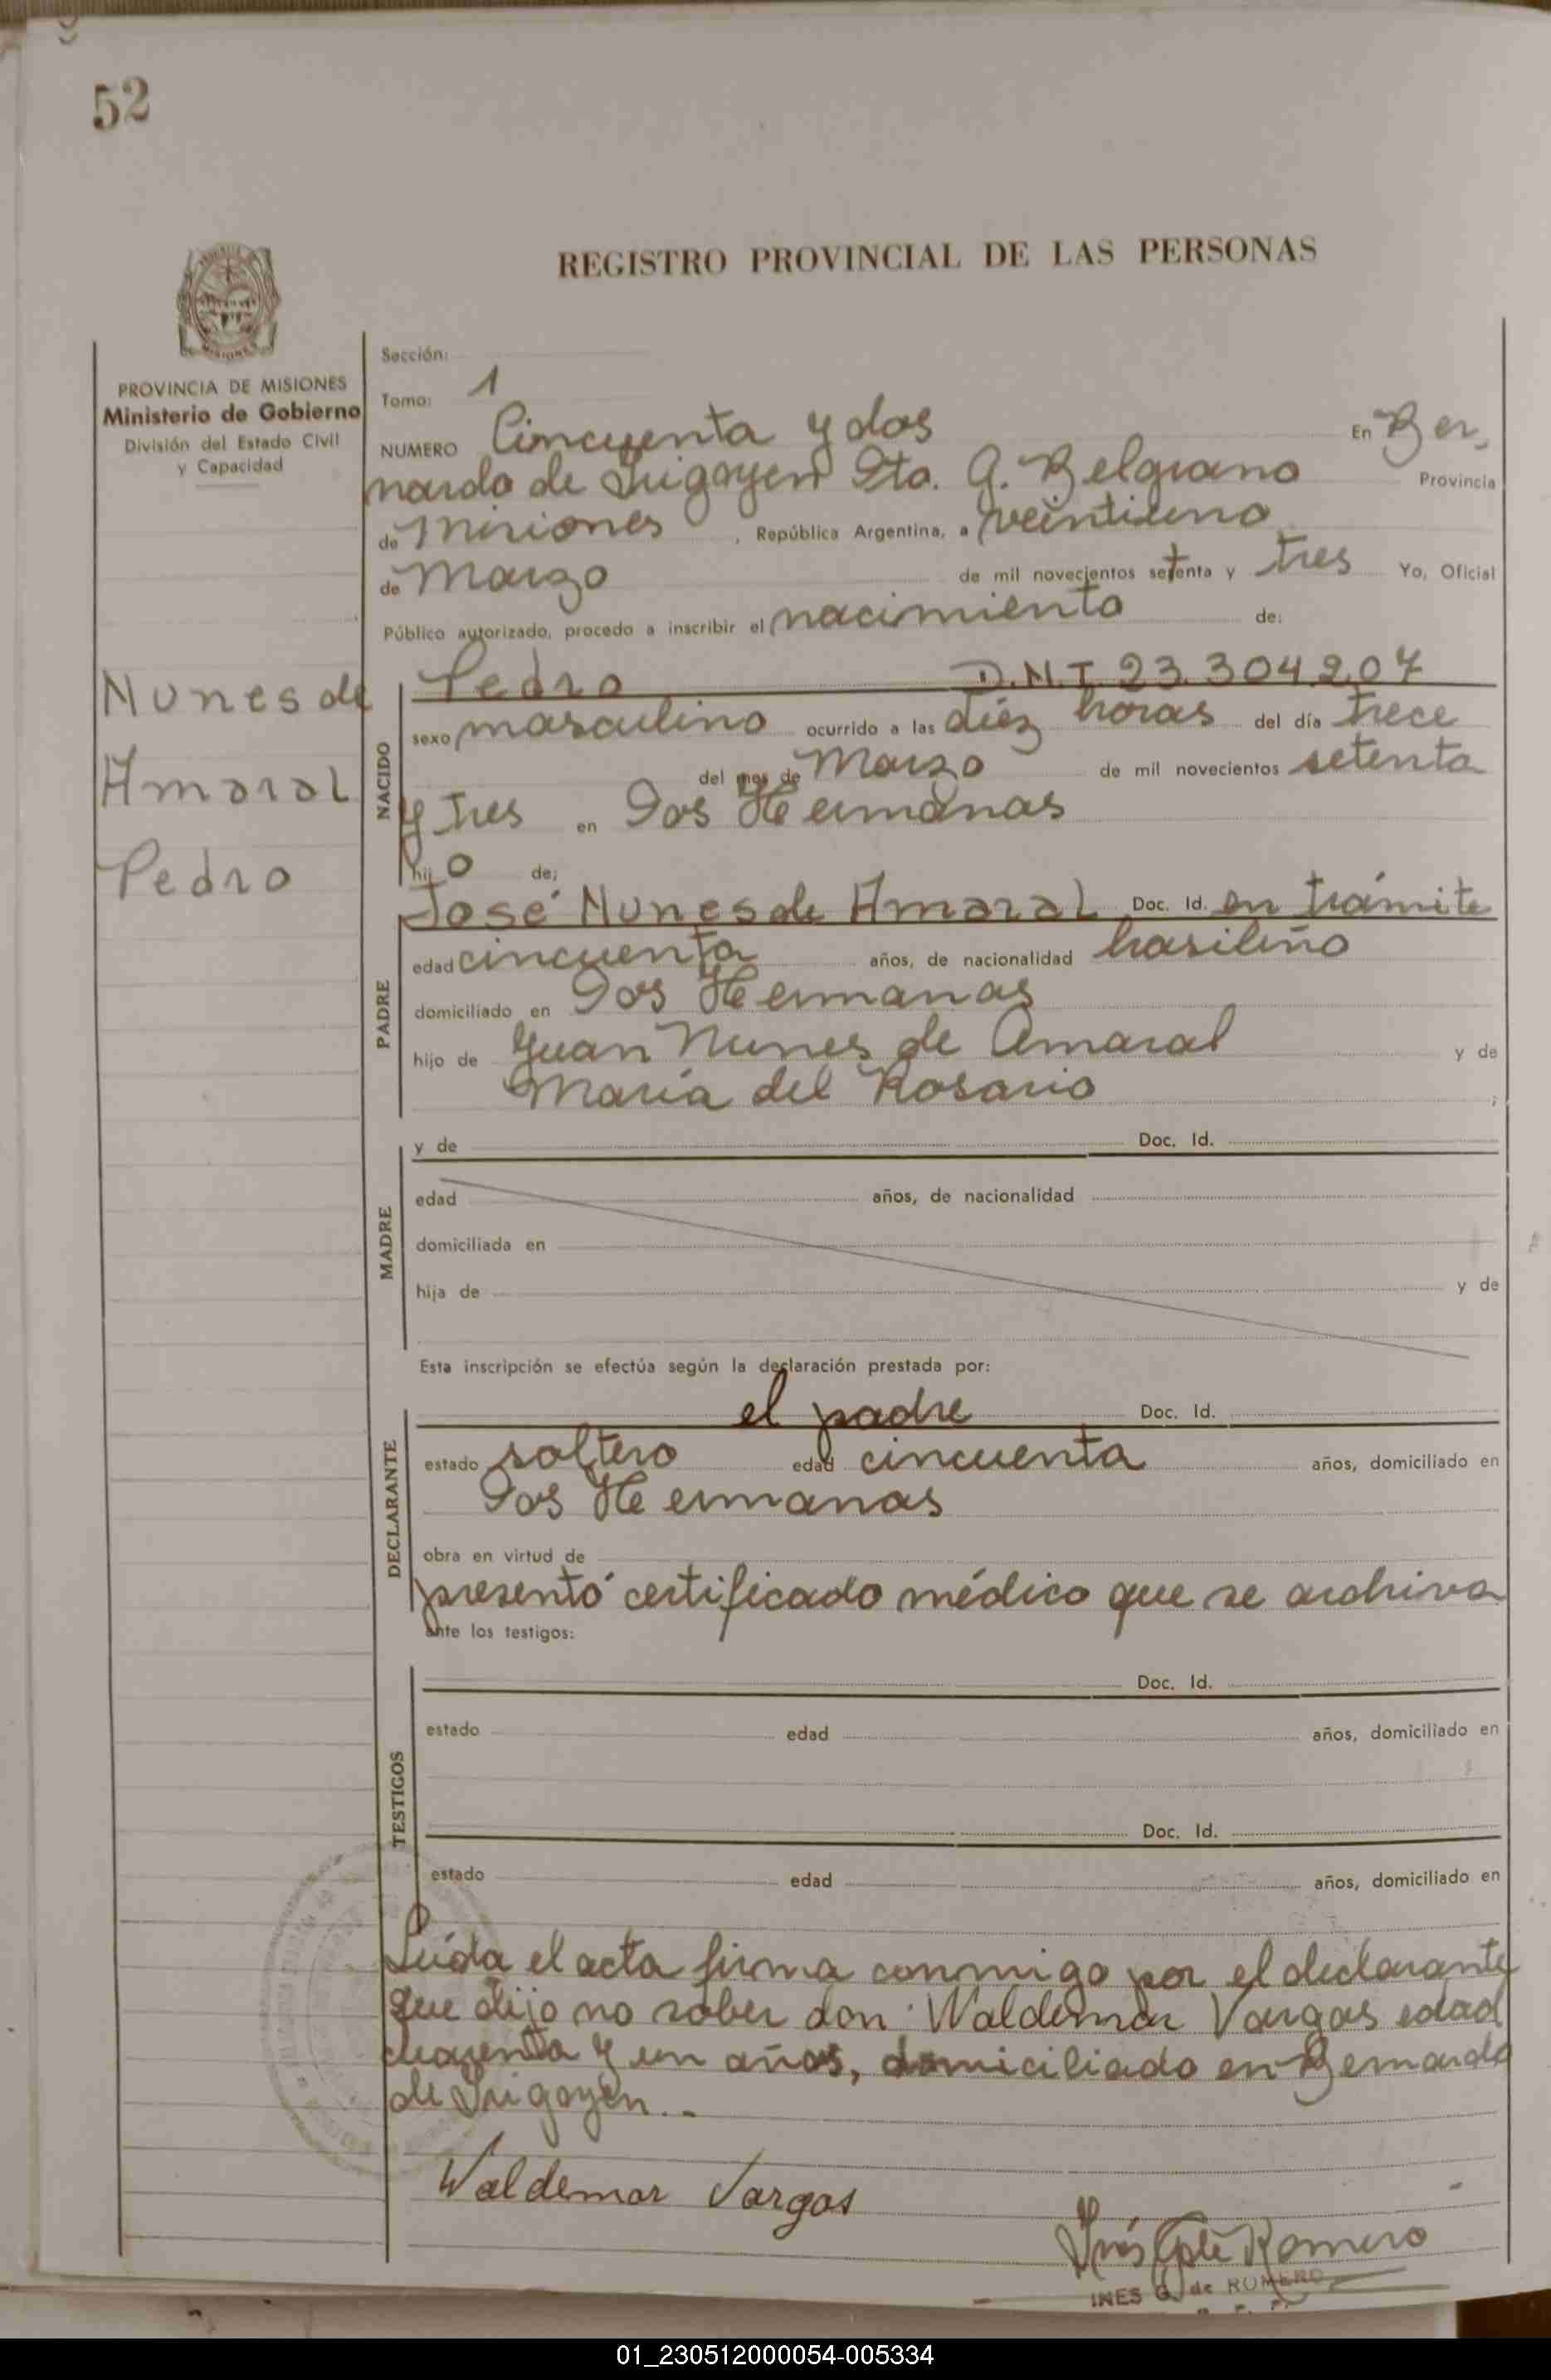 52
REGISTRO PROVINCIAL DE LAS PERSONAS
PROVINCIA DE MISIONES
Ministerio de Gobierno
División del Estado Civil
y Capacidad
Nunes de
Amaral
Pedro
Sección:
Tomo: 1
NUMERO Cincuenta y dos En Ber,
nardo de Irigoyen Dto. G. Belgrano Provincia
de Misiones, República Argentina, a veintiuno
de Marzo de mil novecientos setenta y tres Yo, Oficial
Público autorizado, procedo a inscribir el nacimiento de:
NACIDO
Pedro D.N.I. 23.304.207
sexo masculino ocurrido a las diéz horas del día trece
del mes de Marzo de mil novecientos setenta
y tres en Dos Hermanas
hijo de;
PADRE
José Nunes de Amaral Doc. Id. en trámite
edad cincuenta años, de nacionalidad brasileño
domiciliado en Dos Hermanas
hijo de Juan Nunes de Amaral y de
María del Rosario ;
MADRE
y de Doc. Id.
edad años, de nacionalidad
domiciliada en
hija de y de
Esta inscripción se efectúa según la declaración prestada por:
DECLARANTE
el padre Doc. Id.
estado soltero edad cincuenta años, domiciliado en
Dos Hermanas
obra en virtud de
presentó certificado médico que se archiva
ante los testigos:
TESTIGOS
Doc. Id.
estado edad años, domiciliado en
Doc. Id.
estado edad años, domiciliado en
Leída el acta firma conmigo por el declarante
que dijo no saber don Waldemar Vargas edad
cuarenta y un años, domiciliado en Bernardo
de Irigoyen..-
Waldemar Vargas
Inés Romero
INES G. de ROMERO
01_230512000054-005334